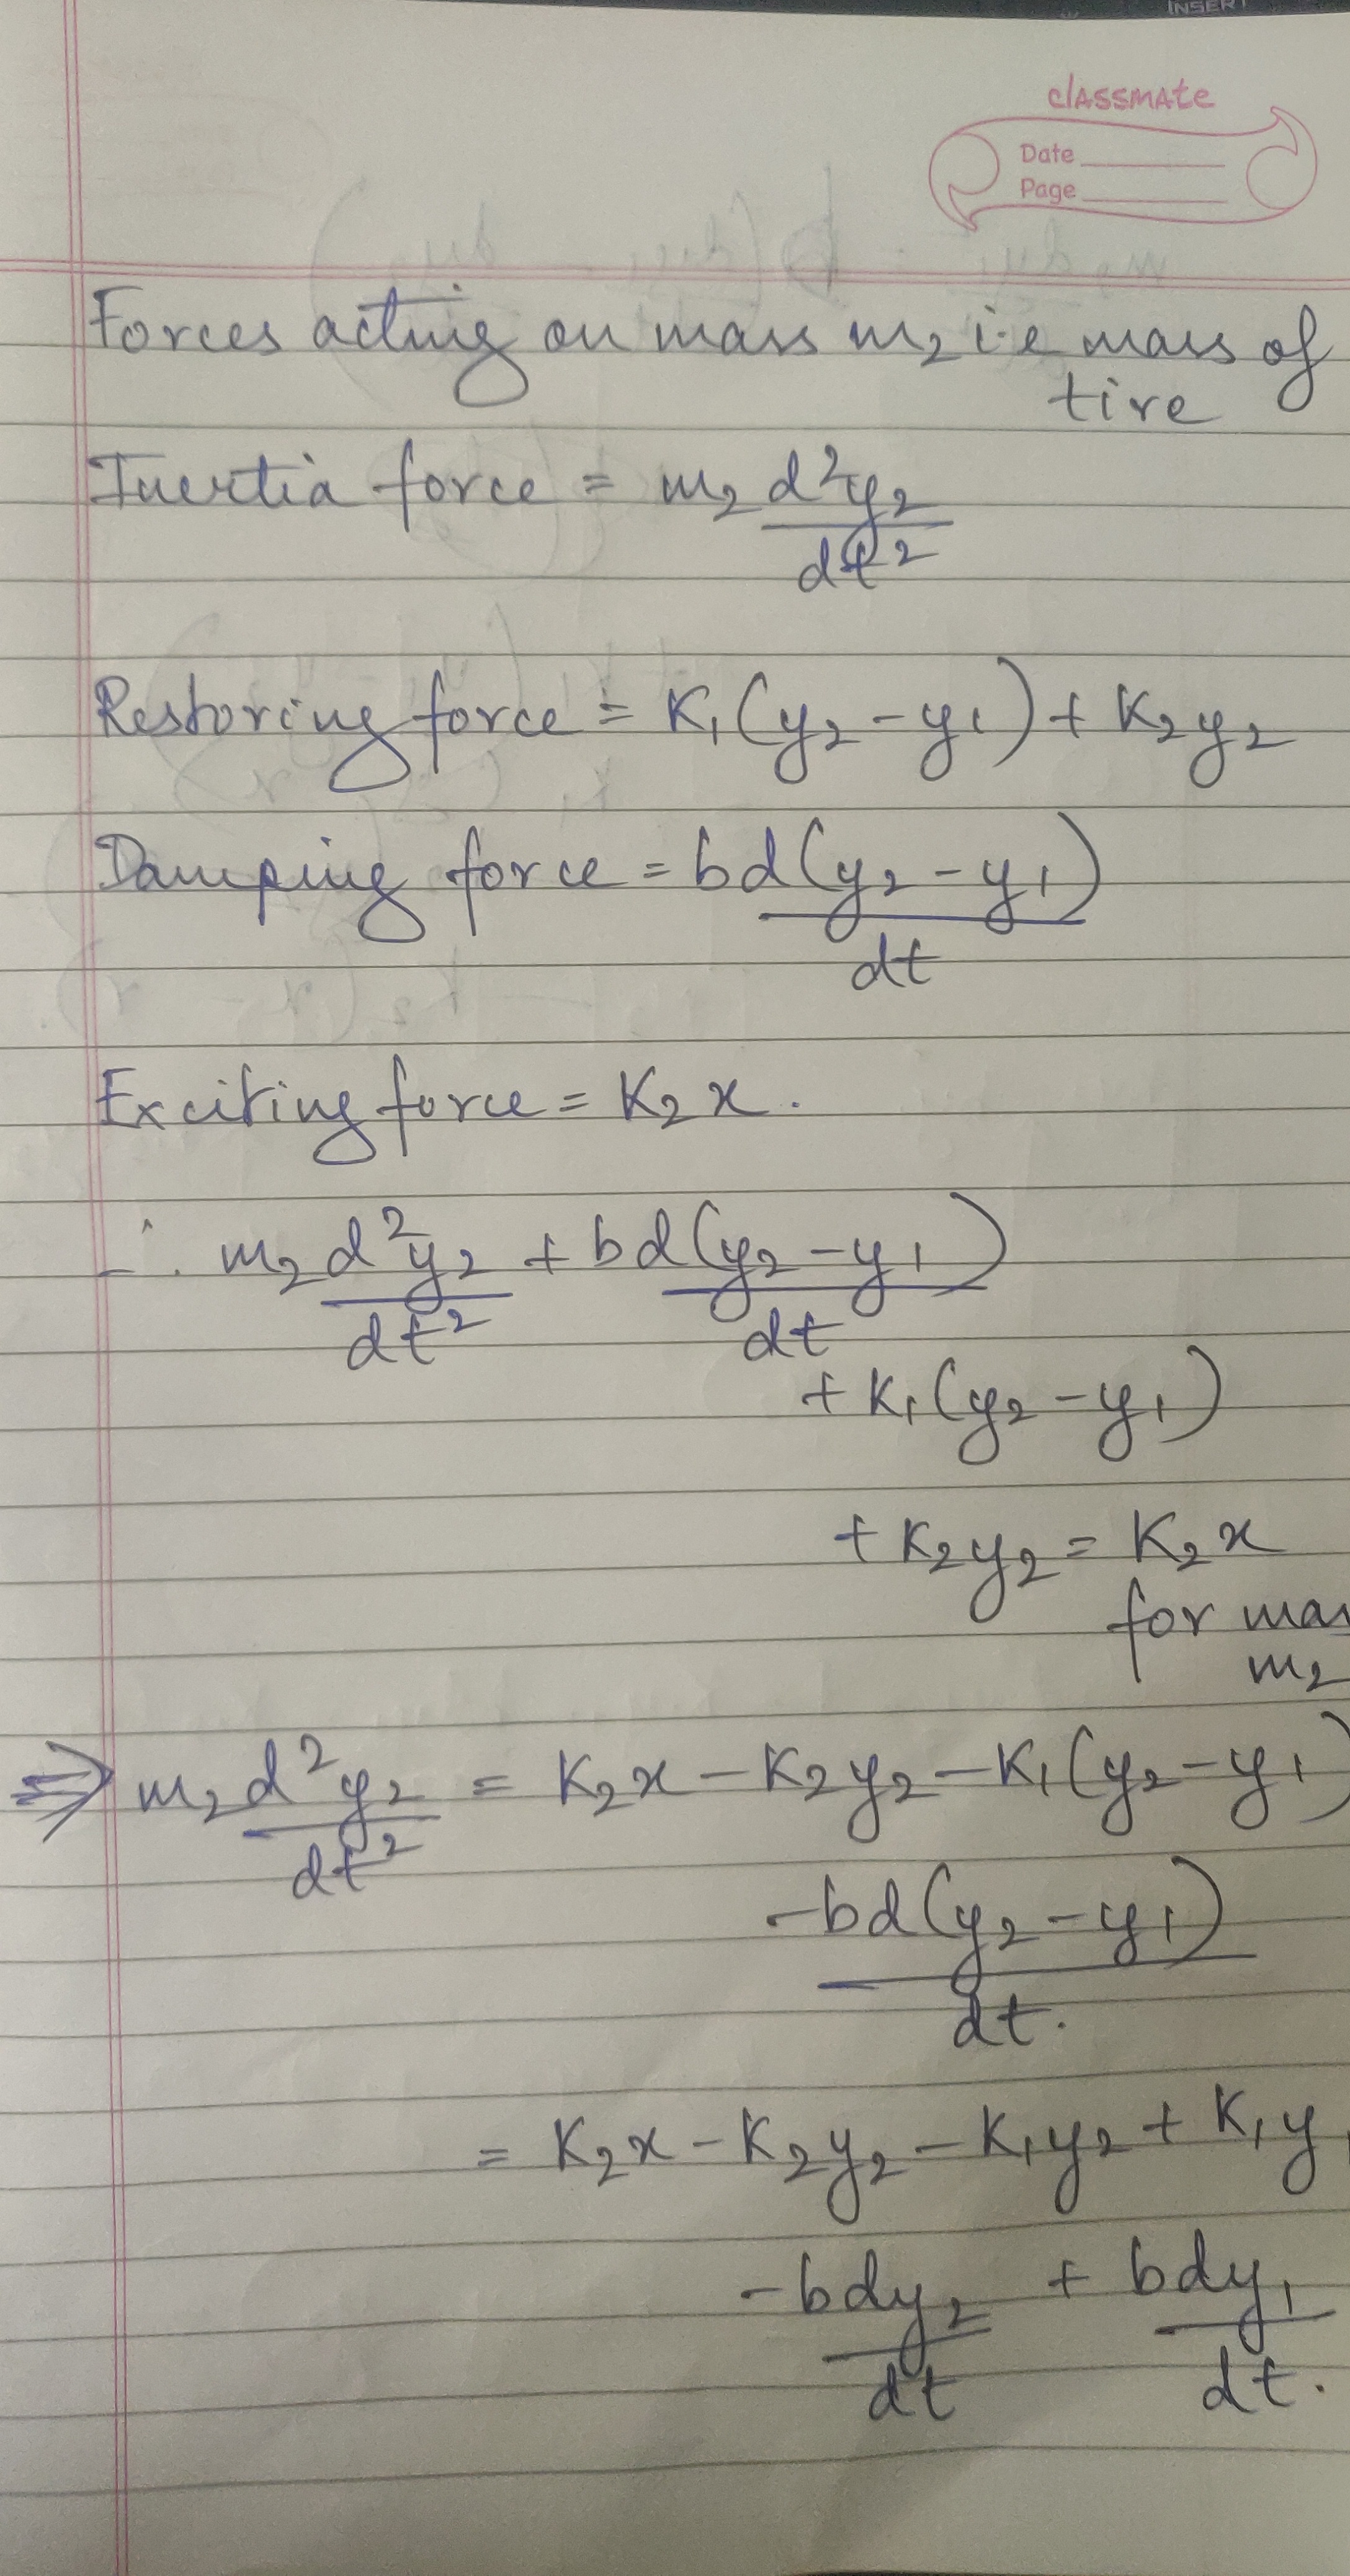 INSERT
classmate
Date
Page
Forces acting on mass m₂ i.e mass of
tire
Inertia force = m₂ d²y₂
dt²
Restoring force = K₁(y₂ - y₁) + K₂y₂
Damping force = bd(y₂ - y₁)
dt
Exciting force = K₂x.
∴ m₂ d²y₂ + bd(y₂ - y₁)
dt² dt
+ K₁(y₂ - y₁)
+ K₂y₂ = K₂x
for mas
m₂
⇒ m₂ d²y₂ = K₂x - K₂y₂ - K₁(y₂ - y₁)
dt²
- bd(y₂ - y₁)
dt.
= K₂x - K₂y₂ - K₁y₂ + K₁y₁
- bdy₂ + bdy₁
dt dt.